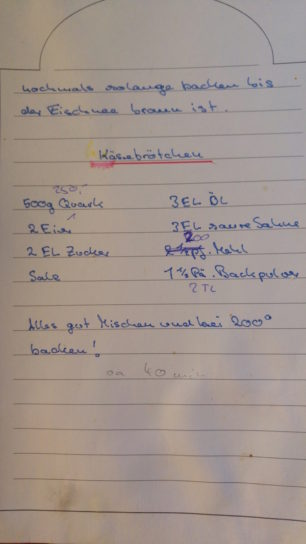 nochmals solange backen bis
der Eischnee braun ist.
Käsebrötchen
250,-
500g Quark 3EL Öl
1
2 Eier 3EL saure Sahne
200
2 EL Zucker Mehl
Salz 1½ Pä. Backpulver
2 TL
Alles gut Mischen und bei 200°
backen!
ca 40 min